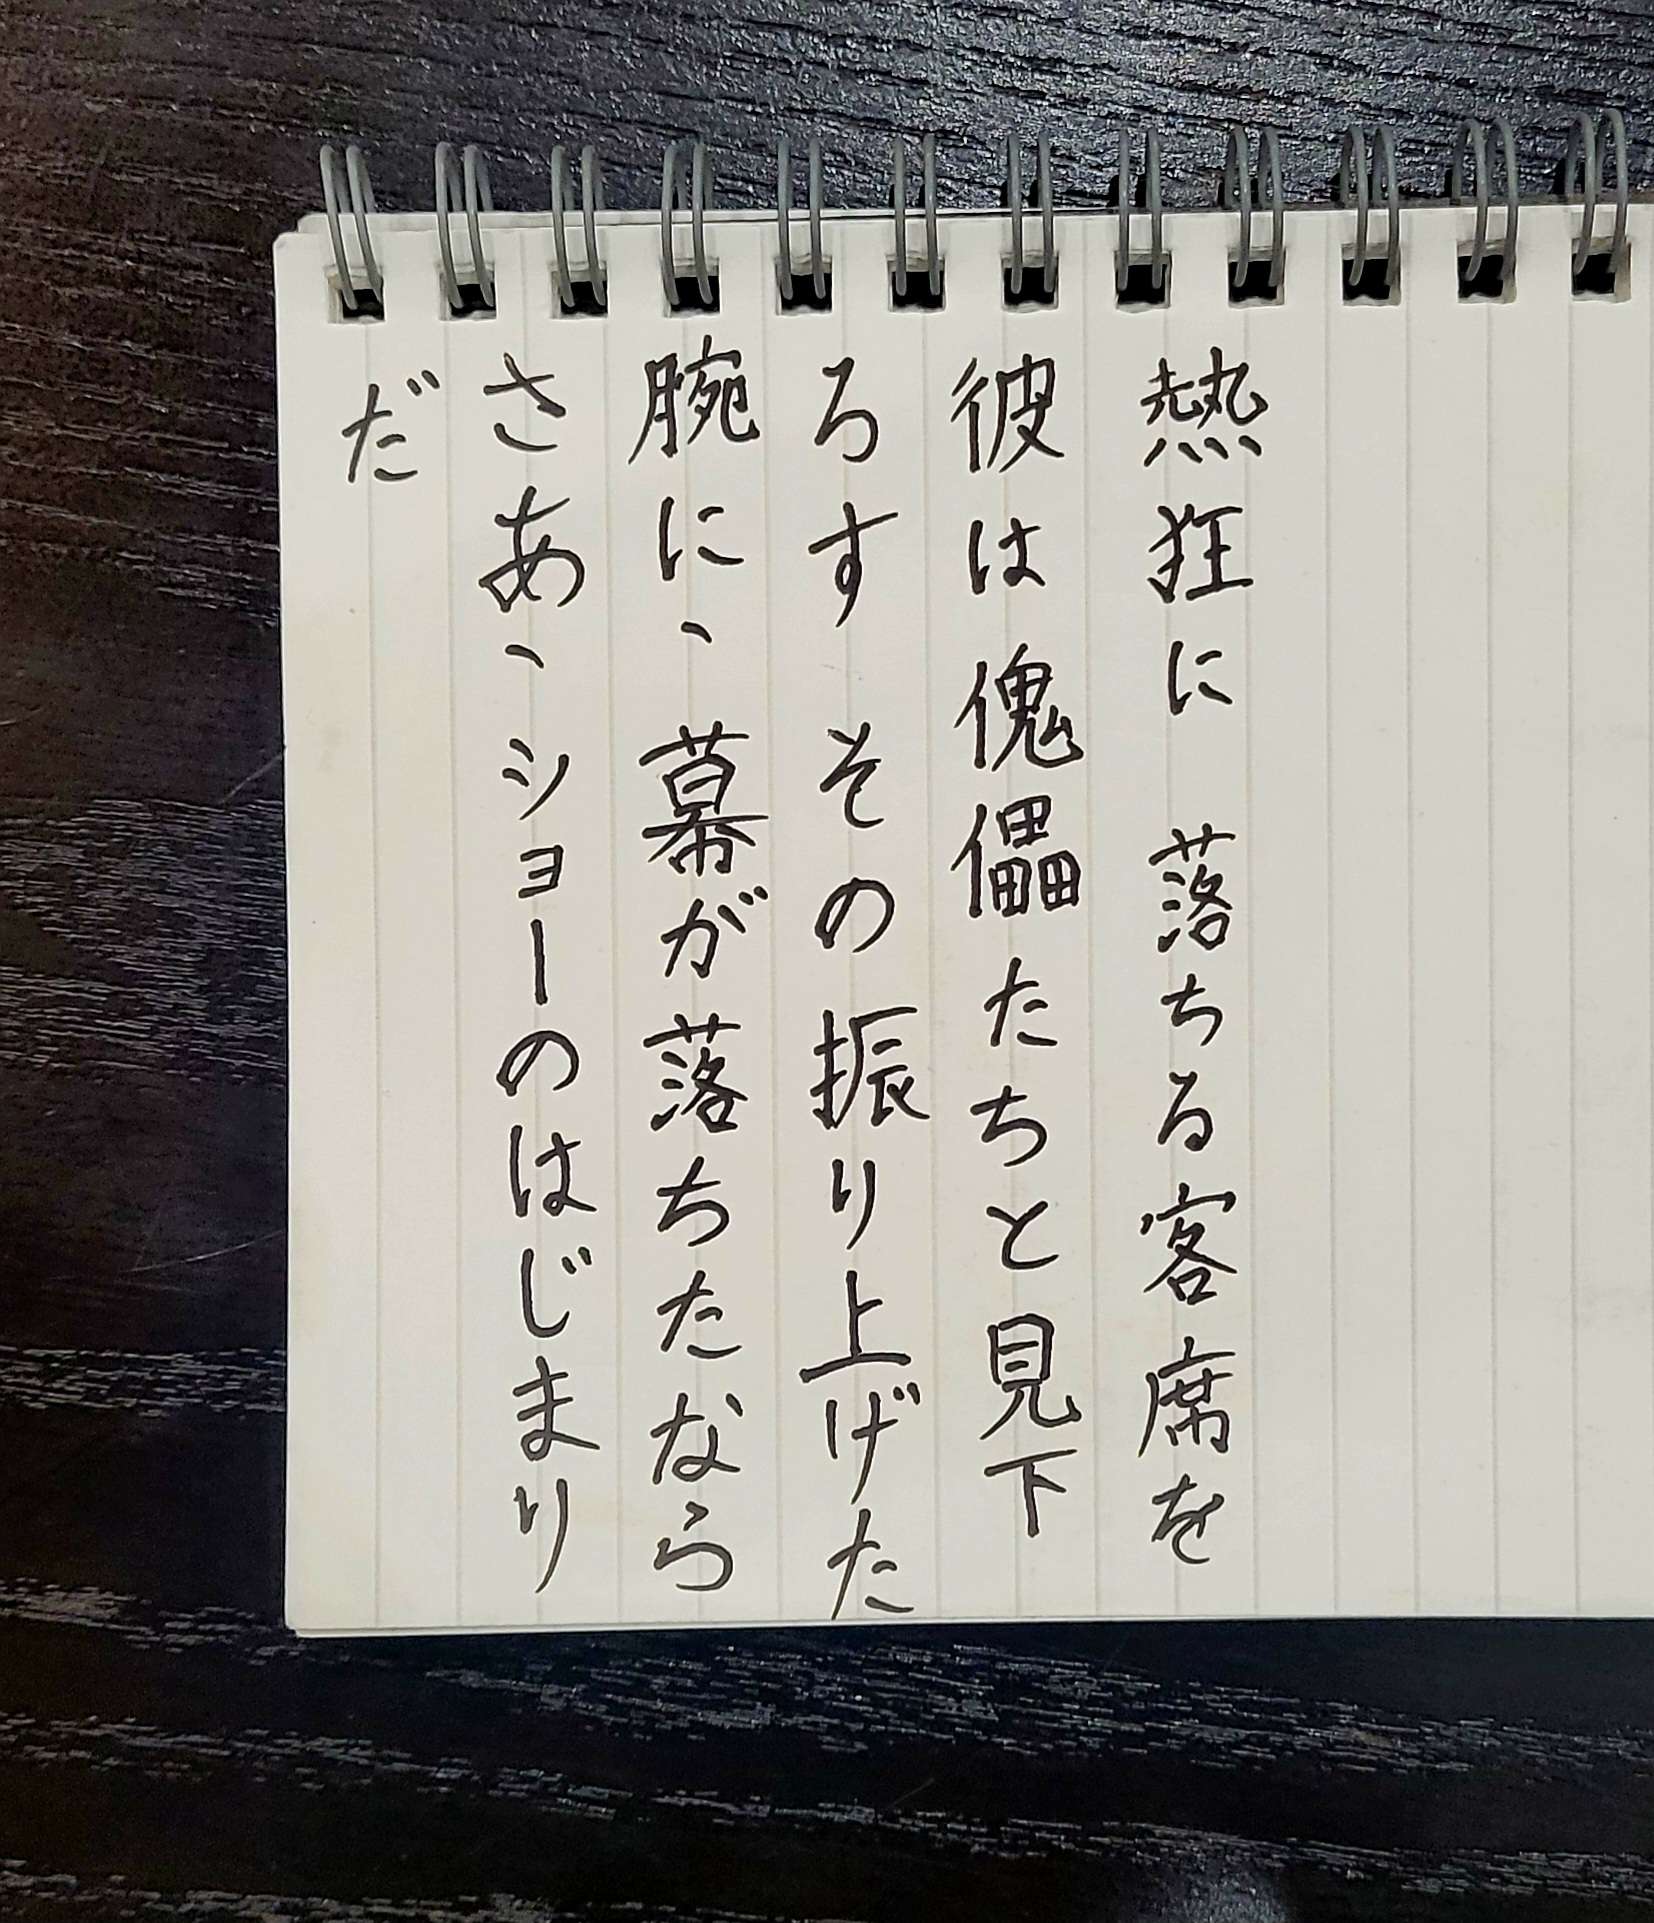 熱狂に　落ちる客席を
彼は傀儡たちと見下
ろす　その振り上げた
腕に、幕が落ちたなら
さあ、ショーのはじまり
だ